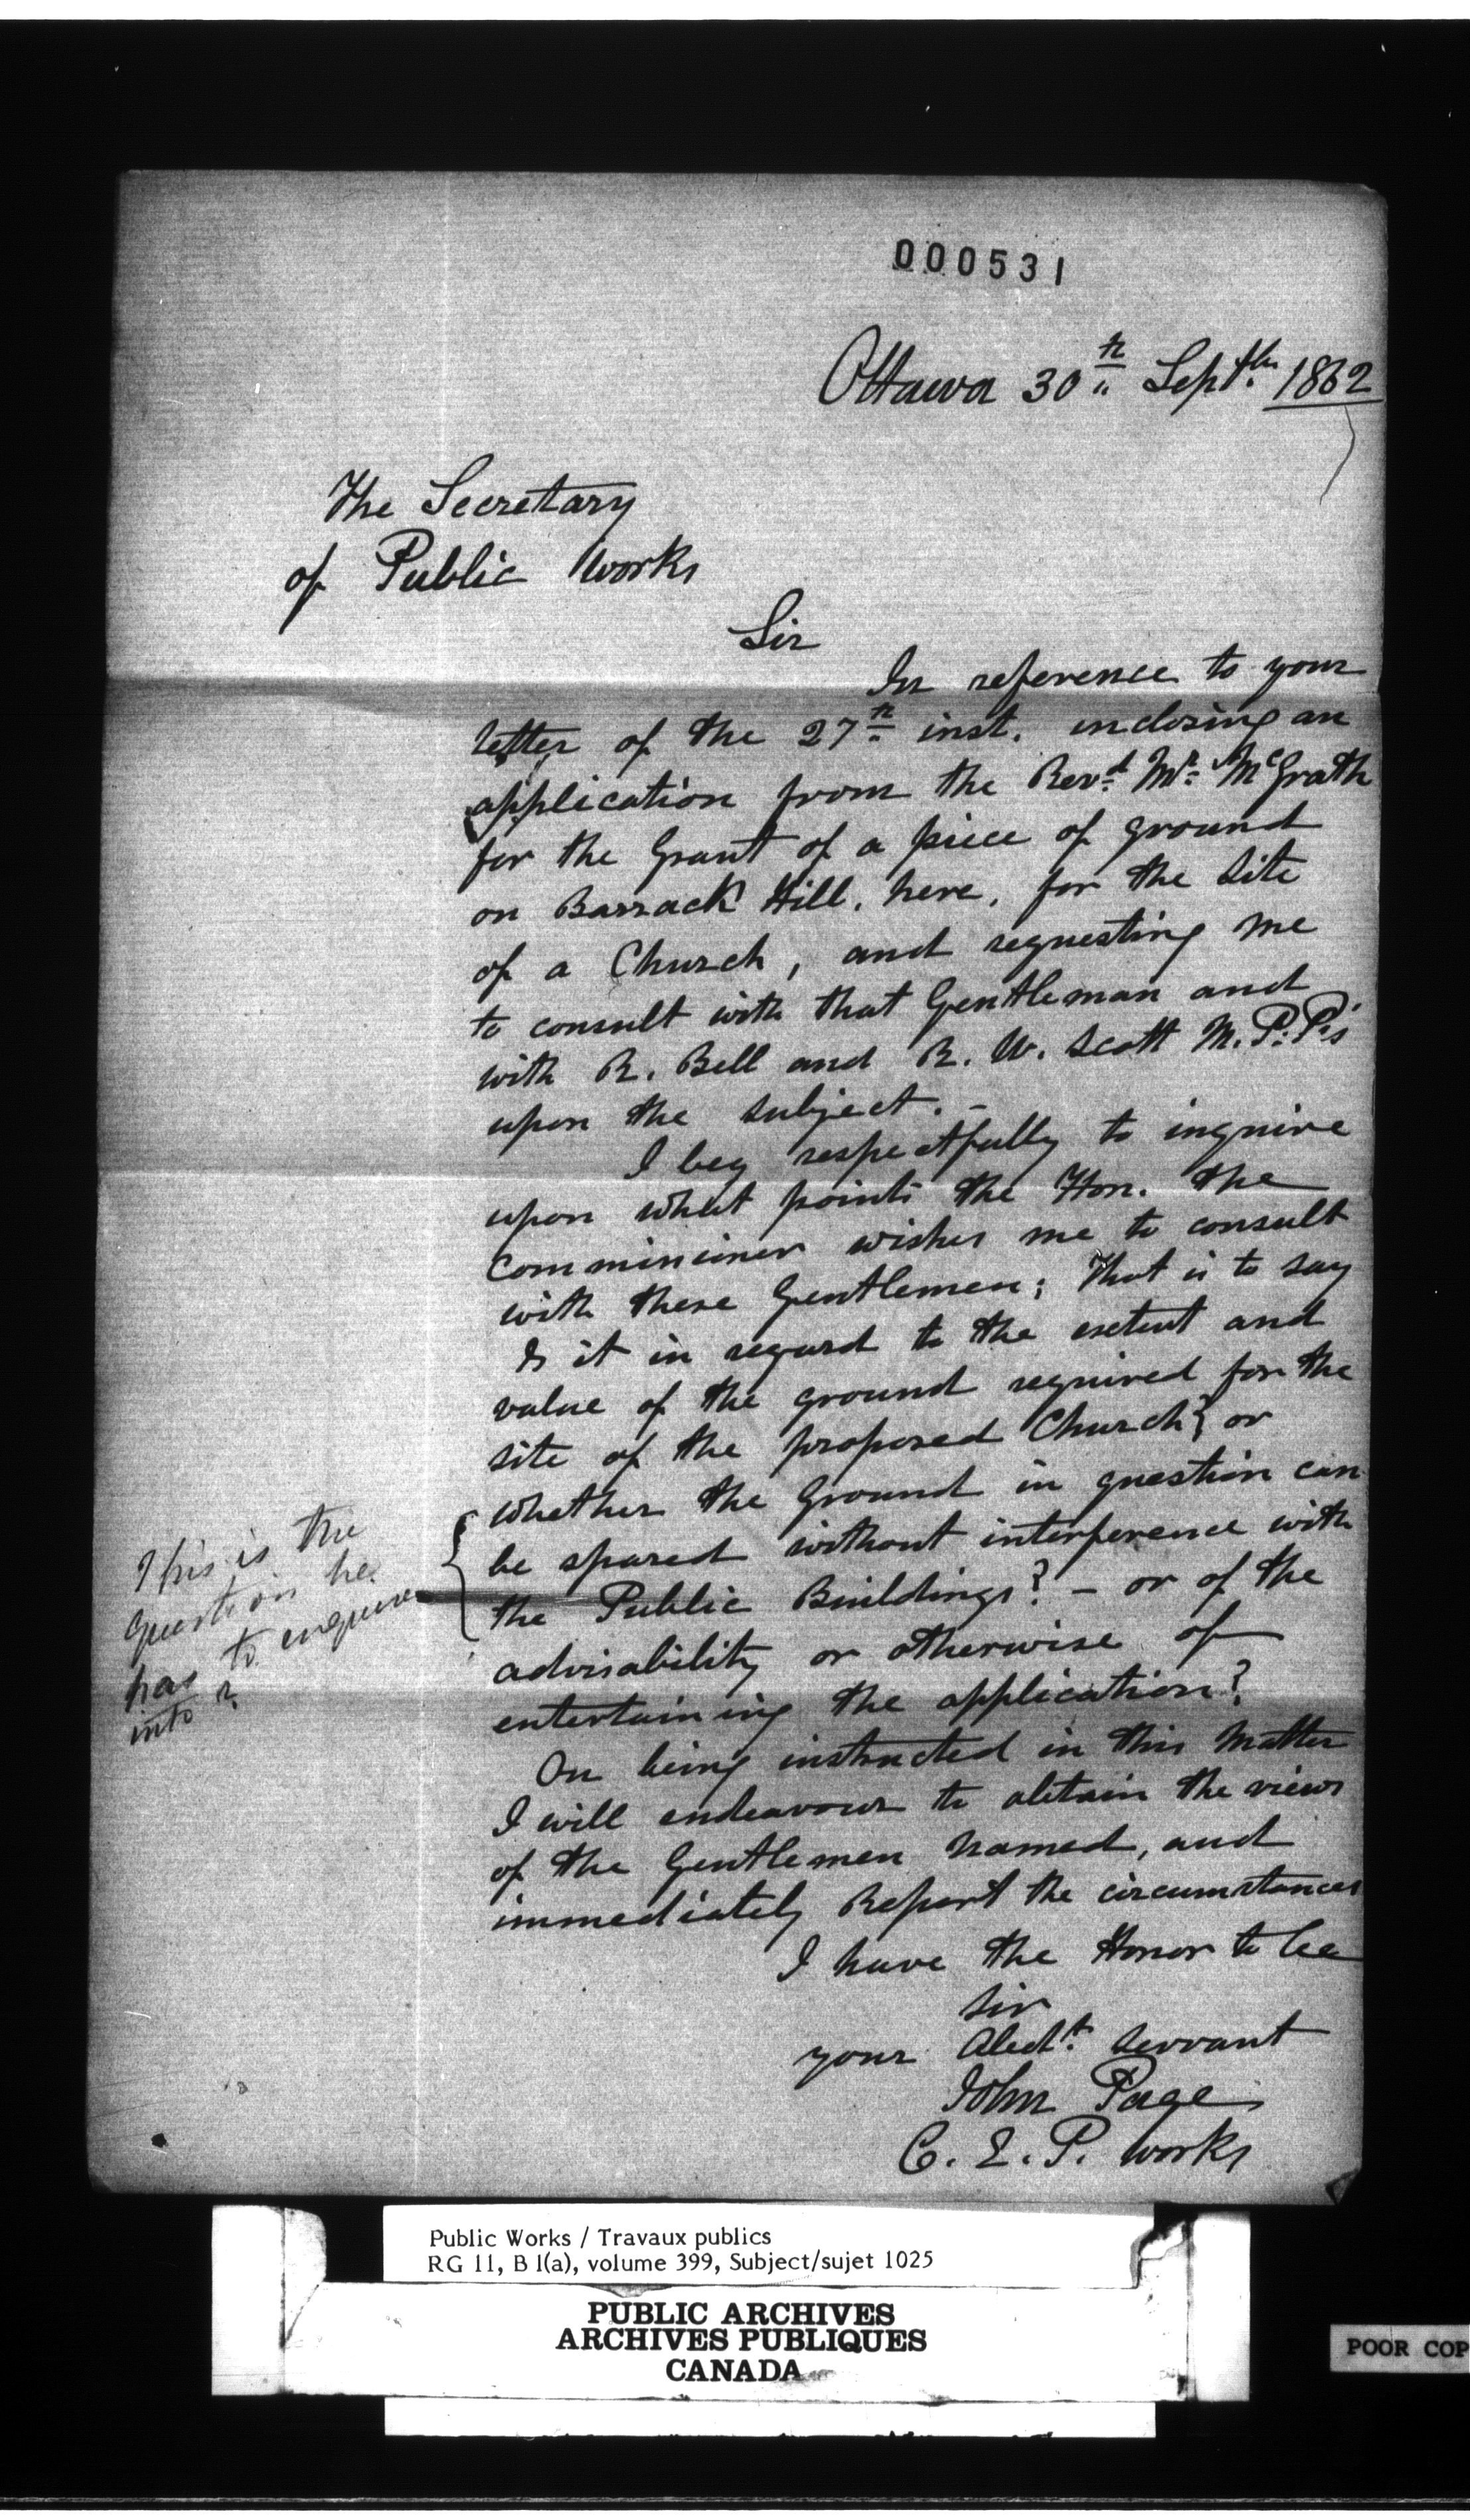 000531
Ottawa 30th Septbr. 1862
The Secretary
of Public Works
Sir
In reference to your
letter of the 27th inst. inclosing an
application from the Revd. Mr. McGrath
for the Grant of a piece of ground
on Barrack Hill, here, for the site
of a Church, and requesting me
to consult with that Gentleman and
with R. Bell and R. W. Scott M.P.P.s
upon the subject. –
I beg respectfully to inquire
upon what points the Hon. the
Commissioner wishes me to consult
with these Gentlemen; That is to say
Is it in regard to the extent and
value of the ground required for the
site of the proposed Church? or
whether the Ground in question can
be spared without interference with
the Public Buildings? – or of the
advisability or otherwise of
entertaining the application?
This is the
question he
has to enquire
into
On being instructed in this Matter
I will endeavour to obtain the views
of the Gentlemen named, and
immediately Report the circumstances
I have the Honor to be
Sir
your Obedt. Servant
John Page
C. E. P. Works
Public Works / Travaux publics
RG 11, B 1(a), volume 399, Subject/sujet 1025
PUBLIC ARCHIVES
ARCHIVES PUBLIQUES
CANADA
POOR COP